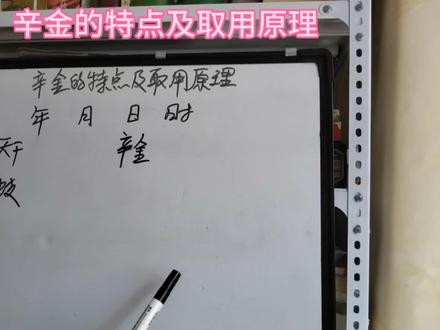 辛金的特点及取用原理
辛金的特点及取用原理
年 月 日 时
天干 辛金